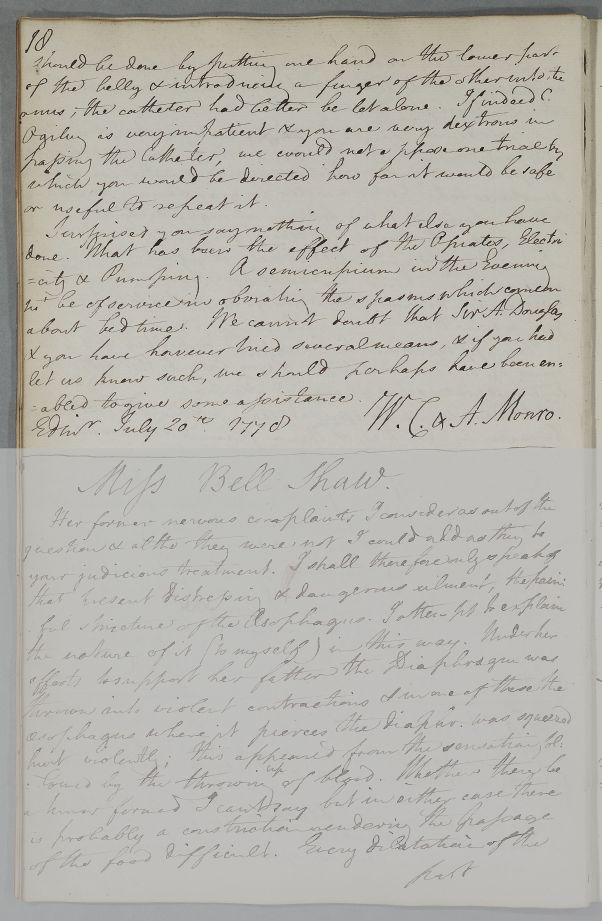 18
should be done by putting one hand on the lower part
of the belly & introducing a finger of the other into the
anus; the catheter had better be let alone. If indeed C.
Ogilvy is very impatient & you are very dextrous in
passing the Catheter, we would not oppose one trial by
which you would be directed how far it would be safe
or useful to repeat it.
I surprised you say nothing of what else you have
done. What has been the effect of the Opiates, Electri
=city & Pumping. A semicupium in the Evening
mt be of service in obviating the spasms which come on
about bed time. We cannot doubt that Sir A. Douglas
& you have however tried several means, & if you had
let us know such, we should perhaps have been en=
=abled to give some assistance.
Edinr. July 20th 1778 W. C. & A. Monro.
Miss Bell Shaw.
Her former nervous complaints I consider as out of the
question & altho they were not I could add as they to
your judicious treatment. I shall therefore only speak of
that present distressing & dangerous ailment, the pain
ful stricture of the Œsophagus. I attempt to explain
the nature of it (to myself) in this way. Under her
efforts to support her father the Diaphragm was
thrown into violent contractions & in one of these the
œsophagus where it pierces the diaphr. was squeezed
hurt violently; this appeared from the sensation fol:
:lowed by the throwing up of blood. Whether there be
a tumor formed I cant say but in either case there
is probably a constriction rendering the passage
of the food difficult. Every dilatation of the
part